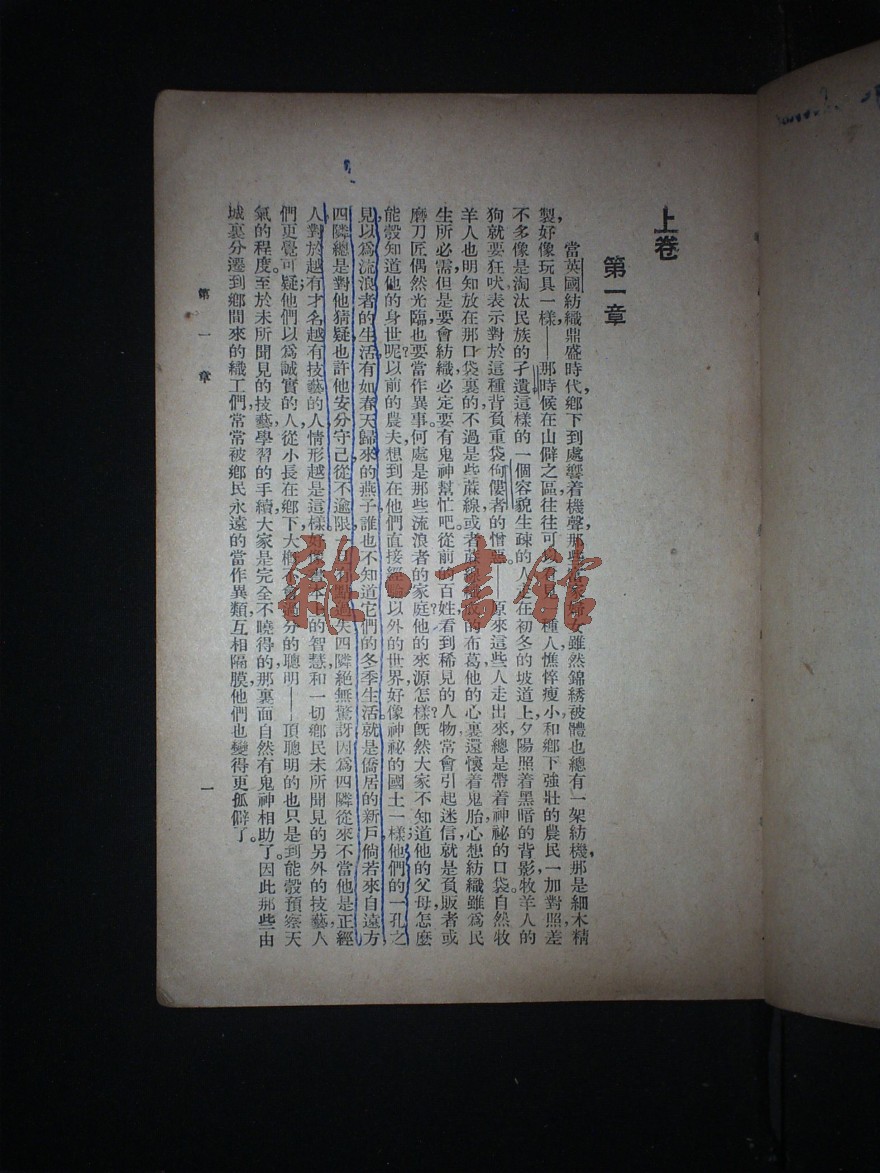 上卷
第一章
當英國紡織鼎盛時代，鄉下到處響着機聲，那些農家婦女雖然錦綉被體，也總有一架紡機，那是細木精
製，好像玩具一樣——那時候在山僻之區，往往可以看見一種人，憔悴瘦小，和鄉下強壯的農民一加對照，差
不多像是淘汰民族的孑遺。這樣的一個容貌生疎的人，在初冬的坡道上，夕陽照着黑暗的背影，牧羊人的
狗就要狂吠，表示對於這種背負重袋傴僂者的憎惡。原來這些人走出來，總是帶着神祕的口袋。自然牧
羊人也明知放在那口袋裏的，不過是些蔴線，或者蔴織的布葛，他的心裏還懷着鬼胎，心想紡織雖為民
生所必需，但是要會紡織，必定要有鬼神幫忙吧。從前的百姓，看到稀見的人物，常會引起迷信，就是負販者或
磨刀匠偶然光臨，也要當作異事。何處是那些流浪者的家庭？他的來源怎樣？既然大家不知道他的父母，怎麼
能彀知道他的身世呢？以前的農夫想到在他們直接經驗以外的世界，好像神祕的國土一樣；他們的一孔之
見，以為流浪者的生活有如春天歸來的燕子，誰也不知道它們的冬季生活；就是僑居的新戶，倘若來自遠方，
四隣總是對他猜疑，也許他安分守己，從不逾限，四隣絕無驚訝，因為四隣從來不當他是正經
人；對於越有才名越有技藝的人，情形越是這樣。的智慧和一切鄉民未所聞見的另外的技藝，人
們更覺可疑。他們以為誠實的人，從小長在鄉下，大概不會過分的聰明——頂聰明的也只是到能彀預察天
氣的程度。至於未所聞見的技藝，學習的手續，大家是完全不曉得的，那裏面自然有鬼神相助了。因此那些由
城裏分遷到鄉間來的織工們，常常被鄉民永遠的當作異類，互相隔膜，他們也變得更孤僻了。
第一章
一
雜·書館